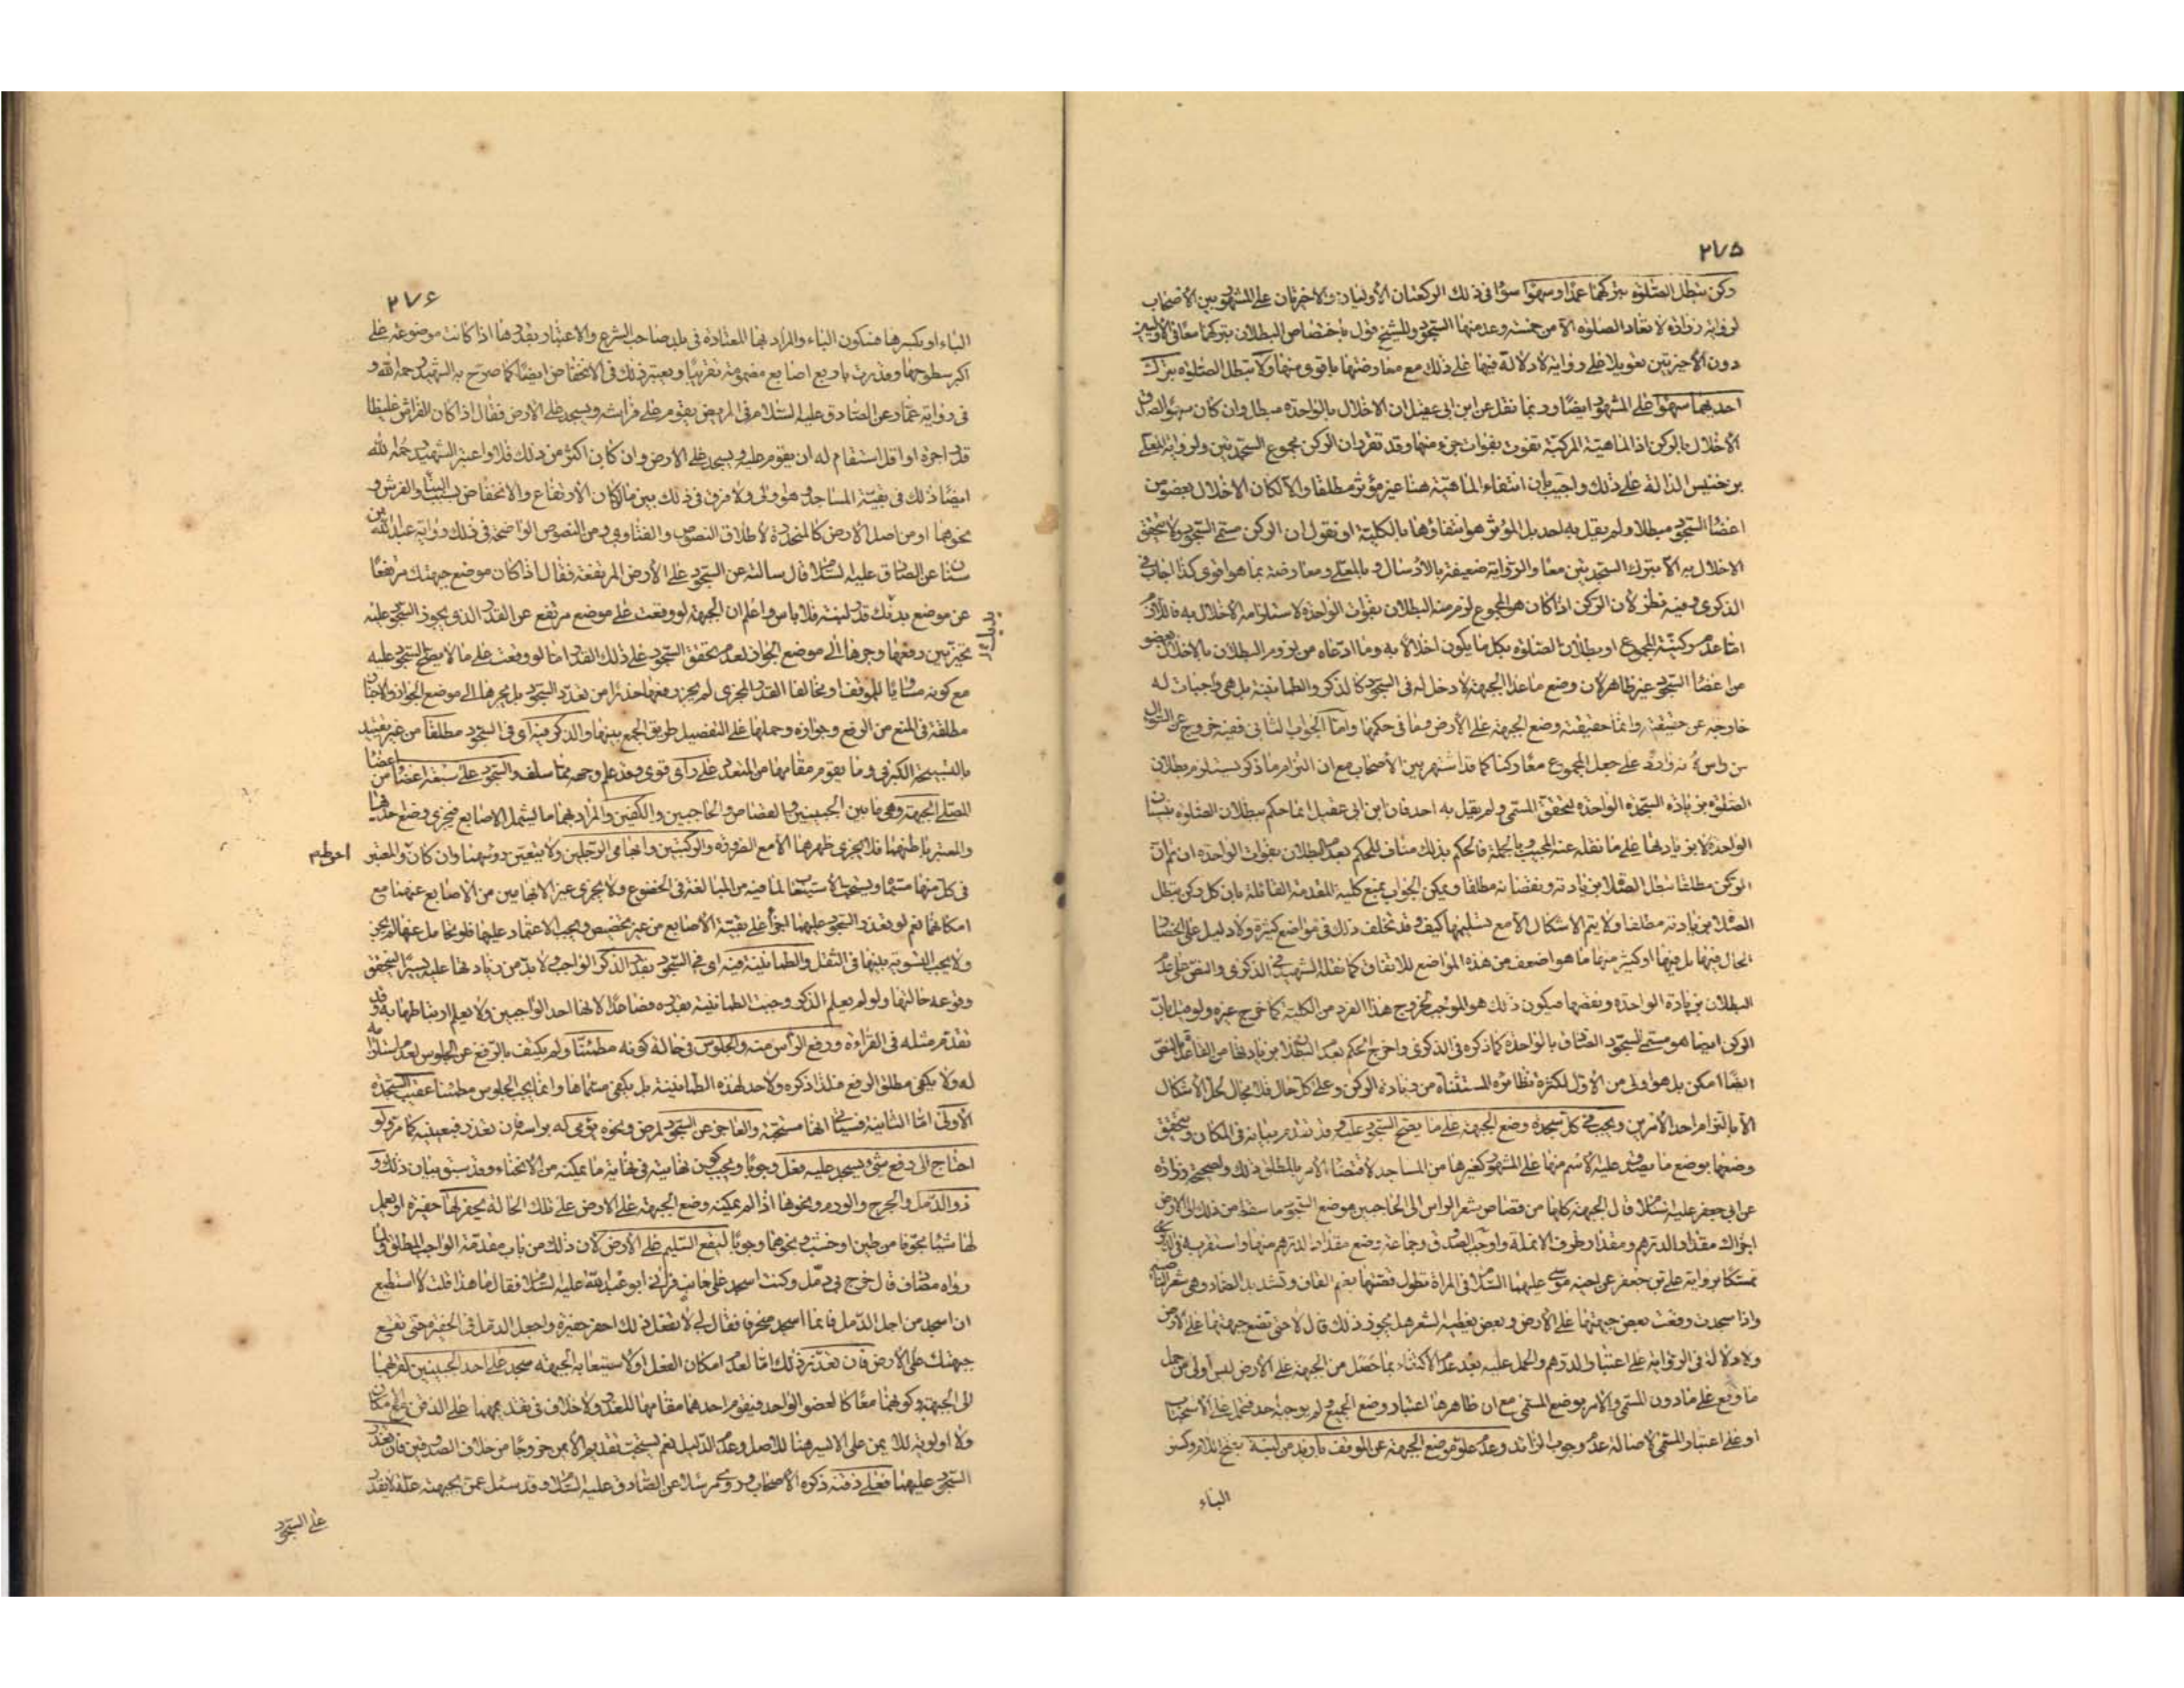 ٢٧٥
ركن تبطل الصلوة بتركهما عمدا وسهوا سواء في ذلك الركعتان الأوليان والأخيرتان على المشهور بين الأصحاب
لرواية زرارة لا تعاد الصلوة الا من خمسة وعد منها السجود وللشيخ قول باختصاص البطلان بتركهما معا في الأوليين
دون الأخيرتين تعويلا على رواية لا دلالة فيها على ذلك مع معارضتها باقوى منها ولا تبطل الصلوة بترك
احديهما سهوا على المشهور ايضا وربما نقل عن ابن ابي عقيل ان الاخلال بالواحدة مبطل وان كان سهوا لصدق
الاخلال بالركن اذ الماهية المركبة تفوت بفوات جزء منها وقد تقرر ان الركن مجموع السجدتين ولرواية المعلى
بن خنيس الدالة على ذلك واجيب بان انتفاء الماهية هنا غير مؤثر مطلقا والا لكان الاخلال بعضو من
اعضاء السجود مبطلا ولم يقل به احد بل المؤثر هو انتفاؤها بالكلية او نقول ان الركن مسمى السجود ولا يتحقق
الاخلال به الا بترك السجدتين معا والرواية ضعيفة بالارسال وبالمعلى ومعارضة بما هو اقوى كذا اجاب في
الذكرى وفيه نظر لان الركن اذا كان هو المجموع لزم منه البطلان بفوات الواحدة لاستلزامه الاخلال به فاللازم
اما عدم ركنية المجموع او بطلان الصلوة بكل ما يكون اخلالا به وما ادعاه من لزوم البطلان بالاخلال بعضو
من اعضاء السجود غير ظاهر لان وضع ما عدا الجبهة لا دخل له في السجود كالذكر والطمانينة بل هي واجبات له
خارجة عن حقيقته وانما حقيقته وضع الجبهة على الارض وما في حكمها واما الجواب الثاني ففيه خروج عن السؤال
من راس على جعل المجموع معا ركنا كما قد اشتهر بين الأصحاب مع ان التزام ما ذكر يستلزم بطلان
الصلوة بزيادة السجدة الواحدة لتحقق المسمى ولم يقل به احد فان ابن ابي عقيل انما حكم ببطلان الصلوة بنسيان
الواحدة لا بزيادتها على ما نقله عنه المجيب وبالجملة فالحكم بذلك مناف للحكم بعدم البطلان بفوات الواحدة
الركن مطلقا تبطل الصلاة بزيادته ونقصانه مطلقا ويمكن الجواب بمنع كلية المقدمة القائلة بان كل ركن تبطل
الصلاة بزيادته مطلقا ولا يتم الاشكال الا مع تسليمها كيف وقد تخلف ذلك في مواضع كثيرة ولا دليل على انحصار
الحال فيها بل فيها او كثير منها ما هو اضعف من هذه المواضع للاتفاق كما نقله الشهيد في الذكرى والنص على عدم
البطلان بزيادة الواحدة ونقصها فيكون ذلك هو الموجب لخروج هذا الفرد من الكلية كما خرج غيره ولو قيل بان
الركن ايضا هو مسمى السجود الصادق بالواحدة كما ذكره في الذكرى واخرج الحكم بعدم البطلان بزيادتها من القاعدة بالنص
ايضا امكن بل هو اولى من الاول لكثرة نظائره المستثناة من زيادة الركن وعلى كل حال فلا مجال لحل الاشكال
الا بالتزام احد الأمرين ويجب في كل سجدة وضع الجبهة على ما يصح السجود عليه وقد تقدم بيانه في المكان ويتحقق
وضعها بوضع ما يصدق عليه الاسم منها على المشهور كغيرها من المساجد لاقتضاء الأمر بالمطلق ذلك ولصحيحة زرارة
عن ابي جعفر عليه السلام قال الجبهة كلها من قصاص شعر الراس الى الحاجبين موضع السجود ما سقط من ذلك الى الارض
اجزاك مقدار الدرهم ومقدار طرف الانملة واوجب الصدوق وجماعة وضع مقدار الدرهم منها واستقربه في الذكرى
تمسكا برواية علي بن جعفر عن اخيه موسى عليهما السلام في المراة تطول قصتها بضم القاف وتشديد الصاد وهي شعر الناصية
واذا سجدت وقعت بعض جبهتها على الارض وبعض يغطيه الشعر هل يجوز ذلك قال لا حتى تضع جبهتها على الارض
ولا دلالة في الرواية على اعتبار الدرهم والحمل عليه بعد عدم الاكتفاء بما حصل من الجبهة على الارض ليس اولى من حمل
ما وقع على ما دون المسمى والامر بوضع المسمى مع ان ظاهرها اعتبار وضع الجميع ولم يوجبه احد فتحمل على الاستحباب
او على اعتبار المسمى لاصالة عدم وجوب الزائد وعدم علو موضع الجبهة عن الموقف بازيد من لبنة بفتح اللام وكسر
الباء
٢٧۶
الباء او بكسرها فسكون الباء والمراد بها المعتادة في بلد صاحب الشرع والاعتبار بقدرها اذا كانت موضوعة على
اكبر سطوحها وقدرت باربع اصابع مضمومة تقريبا ويعتبر ذلك في الانخفاض ايضا كما صرح به الشهيد رحمه الله و
في رواية عمار عن الصادق عليه السلام في المريض يقوم على فراشه ويسجد على الارض فقال اذا كان الفراش غليظا
قدر اجرة او اقل استقام له ان يقوم عليه ويسجد على الارض وان كان اكثر من ذلك فلا واعتبر الشهيد رحمه الله
ايضا ذلك في بقية المساجد وهو اولى ولا فرق في ذلك بين ما لو كان الارتفاع والانخفاض بسبب البناء والفرش و
نحوهما او من اصل الارض كالمنحدرة لاطلاق النصوص والفتاوى ومن النصوص الواضحة في ذلك رواية عبد الله بن
سنان عن الصادق عليه السلام قال سالته عن السجود على الارض المرتفعة فقال اذا كان موضع جبهتك مرتفعا
عن موضع بدنك قدر لبنة فلا باس واعلم ان الجبهة لو وقعت على موضع مرتفع عن القدر الذي يجوز السجود عليه
تخير بين رفعها وجرها الى موضع الجواز لعدم تحقق السجود على ذلك القدر اما لو وقعت على ما لا يصح السجود عليه
مع كونه مساويا للموقف او مخالفا القدر المجزي لم يجز رفعها حذرا من تعدد السجود بل يجرها الى موضع الجواز والاخبار
مطلقة في المنع من الرفع وجوازه وحملها على التفصيل طريق الجمع بينها والذكر فيه اي في السجود مطلقا من غير تقييد
بالتسبيحة الكبرى وما يقوم مقامها من المتعدد على راي قوي وقد علم وجهه مما سلف والسجود على سبعة اعضاء من اعضاء
المصلي الجبهة وهي ما بين الجبينين والقصاص والحاجبين والكفين والمراد بهما ما يشمل الاصابع فيجزي وضع احدهما
والمعتبر باطنهما فلا يجزي ظهرهما الا مع الضرورة والركبتين وابهامي الرجلين ولا يتعين روسهما وان كان والمعتبر
احوط م
في كل منها مسماه ويستحب الاستيعاب لما فيه من المبالغة في الخضوع ولا يجزي غير الابهامين من الاصابع عنهما مع
امكانهما نعم لو تعذر السجود عليهما اجزأ على بقية الاصابع من غير تخصيص ويجب الاعتماد عليها فلو تحامل عنها لم يجز
ولا يجب التسوية بينها في الثقل والطمانينة فيه اي في السجود بقدر الذكر الواجب ولا بد من زيادتها عليه يسيرا ليتحقق
وقوعه حالتها ولو لم يعلم الذكر وجبت الطمانينة بقدره فصاعدا لانها احد الواجبين ولا يعلم ارتباطها به وقد
تقدم مثله في القراءة ورفع الرأس منه والجلوس في حالة كونه مطمئنا ولم يكتف بالرفع عن الجلوس لعدم استلزامه
له ولا يكفي مطلق الرفع فلذا ذكره ولا حد لهذه الطمانينة بل يكفي مسماها وانما يجب الجلوس مطمئنا عقيب السجدة
الأولى اما الثانية فسيأتي انها مستحبة والعاجز عن السجود لمرض ونحوه يومي له براسه فان تعذر فبعينيه كما مر ولو
احتاج الى رفع شيء ويسجد عليه فعل وجوبا ويجب كون نهايته ما يمكنه من الانحناء وقد سبق بيان ذلك و
ذو الدمل والجرح والورم ونحوها اذا لم يمكنه وضع الجبهة على الارض على تلك الحالة يحفر لها حفيرة او يعمل
لها شيئا مجوفا من طين او خشب ونحوهما وجوبا ليقع السليم على الارض لان ذلك من باب مقدمة الواجب المطلق ولما
رواه مصادف قال خرج بي دمل وكنت اسجد على جانب فرآني ابو عبد الله عليه السلام فقال ما هذا قلت لا استطيع
ان اسجد من اجل الدمل فانما اسجد منحرفا فقال لي لا تفعل ذلك احفر حفيرة واجعل الدمل في الحفرة حتى تقع
جبهتك على الارض فان تعذر ذلك اما لعدم امكان الفعل او لاستيعابه الجبهة سجد على احد الجبينين لقربهما
الى الجبهة وكونهما معا كالعضو الواحد فيقوم احدهما مقامها للعذر ولا خلاف في تقديمهما على الذقن مع امكان
ولا اولوية للايمن على الايسر هنا للاصل وعدم الدليل نعم يستحب تقديم الايمن خروجا من خلاف الصدوقين فان تعذر
السجود عليهما فعلى ذقنه ذكره الأصحاب وروي مرسلا عن الصادق عليه السلام وقد سئل عمن بجبهته علة لا يقدر
على السجود